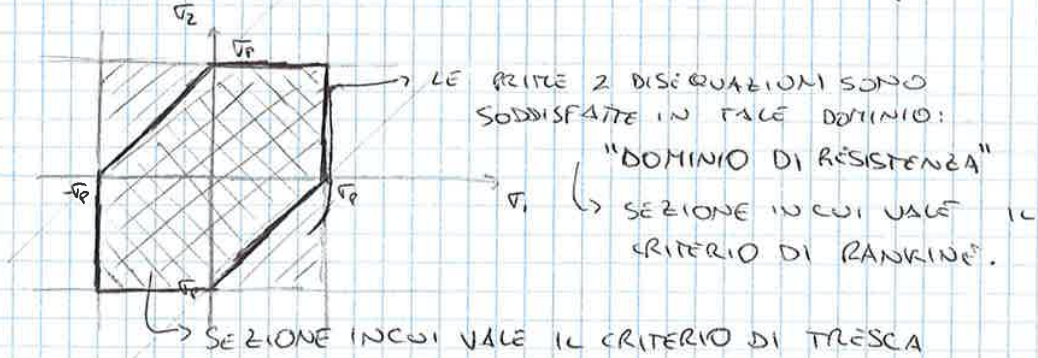 σ₂
σₚ
→ LE PRIME 2 DISEQUAZIONI SONO
SODDISFATTE IN TALE DOMINIO:
"DOMINIO DI RESISTENZA"
-σₚ
σₚ
σ₁
↳ SEZIONE IN CUI VALE IL
CRITERIO DI RANKINE.
-σₚ
↳ SEZIONE IN CUI VALE IL CRITERIO DI TRESCA